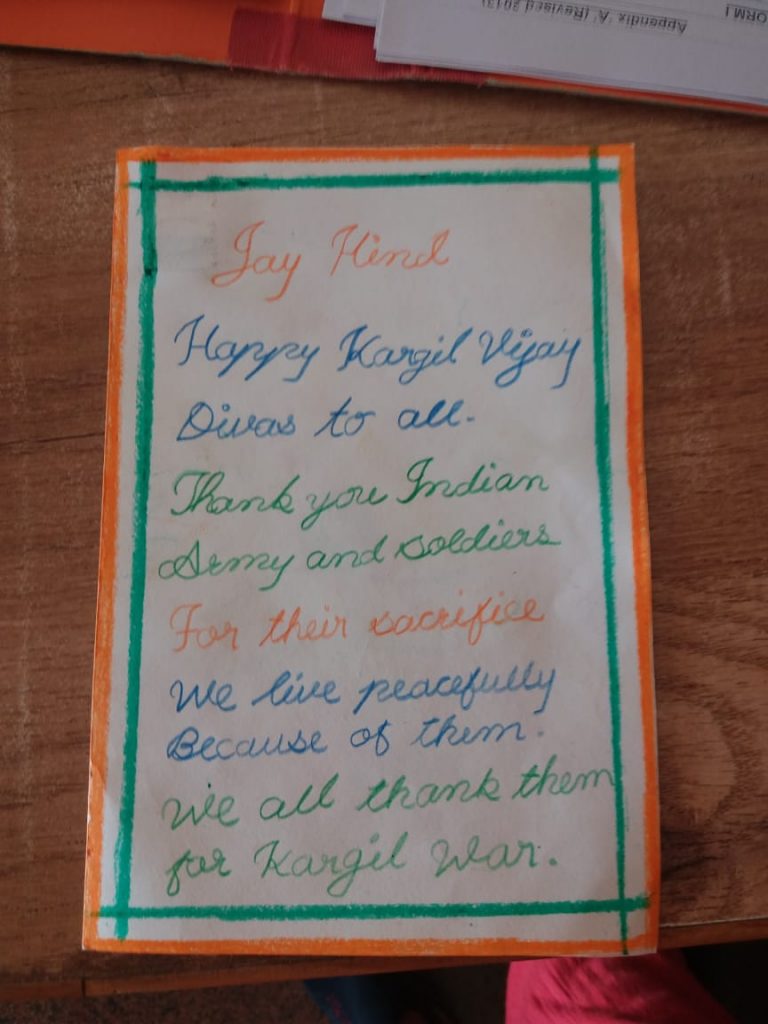 ORM I
Appendix 'A' (Revised 2013)
Jay Hind
Happy Kargil Vijay
Divas to all.
Thank you Indian
Army and soldiers
For their sacrifice
We live peacefully
Because of them.
We all thank them
for Kargil War.